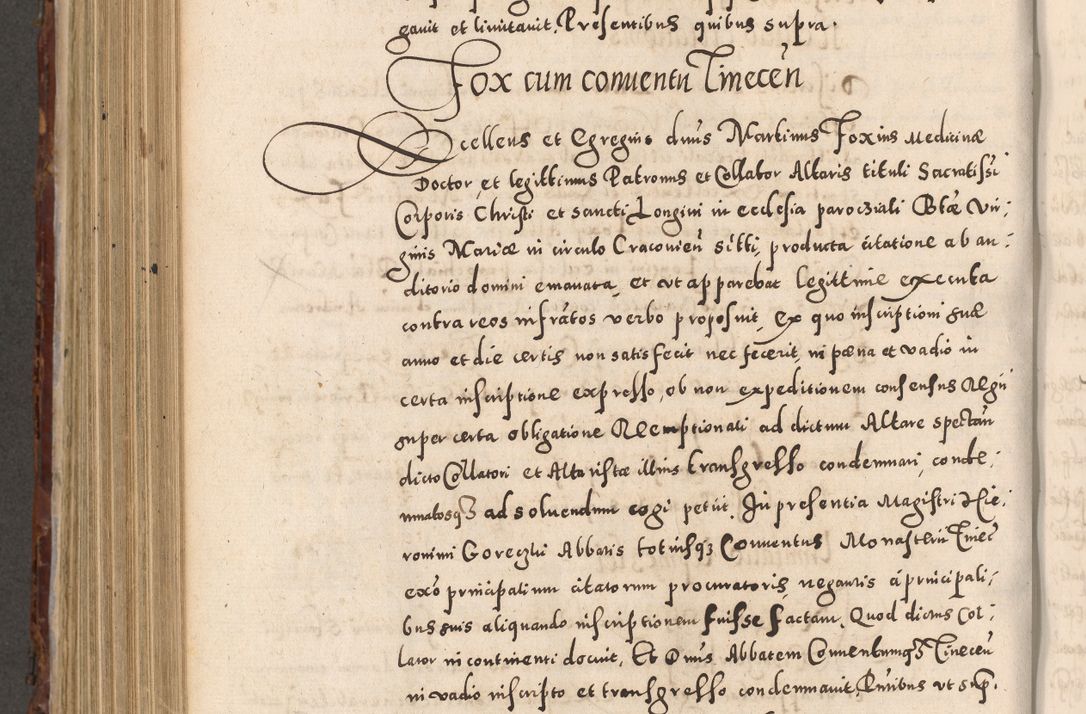 gauit et limitauit. Presentibus quibus supra.
Fox cum conuentu Tinecen̄
Excellens et Egregius dnus Martinus Foxius Medicinæ
Doctor et legittimus Patronus et Collator Altaris tituli Sacratissi
Corporis Christi et sancti Longini in ecclesia parochiali Btæ Vir,
ginis Mariæ in circulo Cracouien̄ sitti, producta citatione ab au,
ditorio domini emanata, et ut apparebat legittime executa
contra reos infratos verbo proposuit, Ex quo inscriptioni suæ
anno et die certis non satisfecit nec fecerit, in pæna et vadio in
certa inscriptione expresso, ob non expeditionem consensus Regii
super certa obligatione Reemptionali ad dictum Altare spectan̄
dicto Collatori et Altaristæ illius transgresso condemnari, conde,
mnatosq3 ad soluendum cogi petiit. In presentia Magistri Hie,
ronimi Goreczki Abbatis totiusq3 Conuentus Monasterii Tinec̄
exo principalium citatorum procuratoris, negantis a principali,
bus suis aliquando inscriptionem fuisse factam, Quod dictus Col,
lator in continenti docuit, Et Dnus Abbatem Conuentumq3 Tinecen̄
in vadio inscripto et transgresso condemnauit. Quibus ut sup.